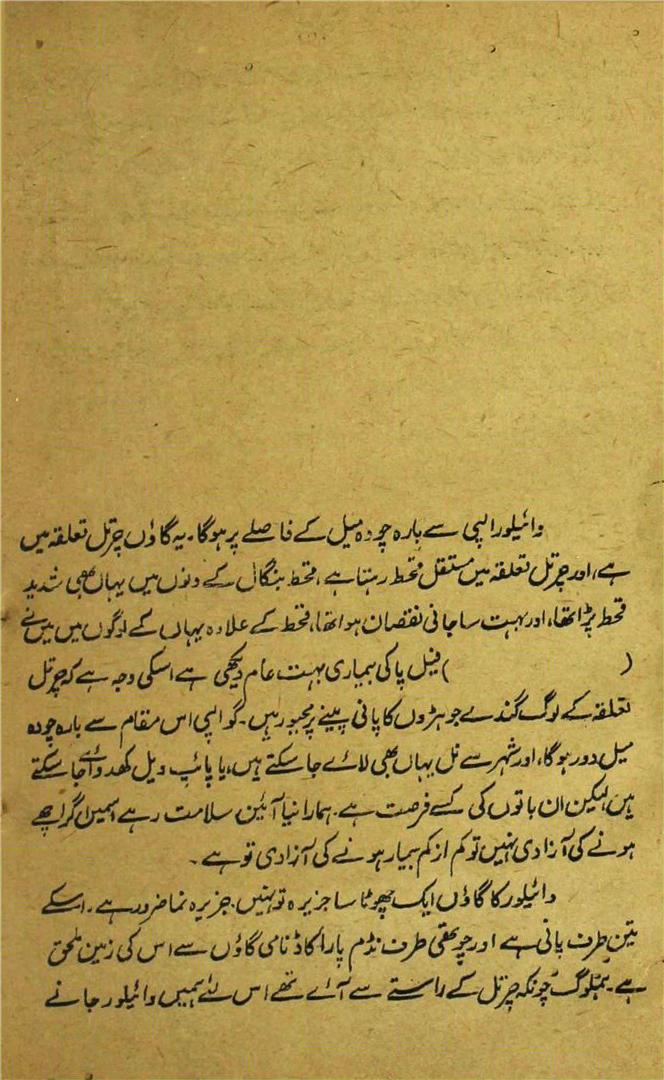 وائیلور الپی سے بارہ چودہ میل کے فاصلے پر ہوگا۔ یہ گاؤں چرتل تعلقہ میں
ہے، اور چرتل تعلقہ میں مستقل قحط رہتا ہے، قحط بنگال کے دنوں میں یہاں بھی شدید
قحط پڑا تھا، اور بہت سا جانی نقصان ہوا تھا، قحط کے علاوہ یہاں کے لوگوں میں میں نے
( ) فیل پا کی بیماری بہت عام دیکھی ہے اسکی وجہ ہے کہ چرتل
تعلقہ کے لوگ گندے جوہڑوں کا پانی پینے پر مجبور ہیں۔ گو الپی اس مقام سے بارہ چودہ
میل دور ہوگا، اور شہر سے نل یہاں بھی لائے جا سکتے ہیں، یا پائپ ویل کھدوائے جا سکتے
ہیں لیکن ان باتوں کی کسے فرصت ہے۔ ہمارا نیا آئین سلامت رہے ہمیں اگر اچھے
ہونے کی آزادی نہیں تو کم از کم بیمار ہونے کی آزادی تو ہے۔
وائیلور کا گاؤں ایک چھوٹا سا جزیرہ تو نہیں۔ جزیرہ نما ضرور ہے۔ اسکے
تین طرف پانی ہے اور چوتھی طرف نڈم پاراکاڈ نامی گاؤں سے اس کی زمین ملحق
ہے۔ ہملوگ چونکہ چرتل کے راستے سے آئے تھے اس لئے ہمیں وائیلور جانے